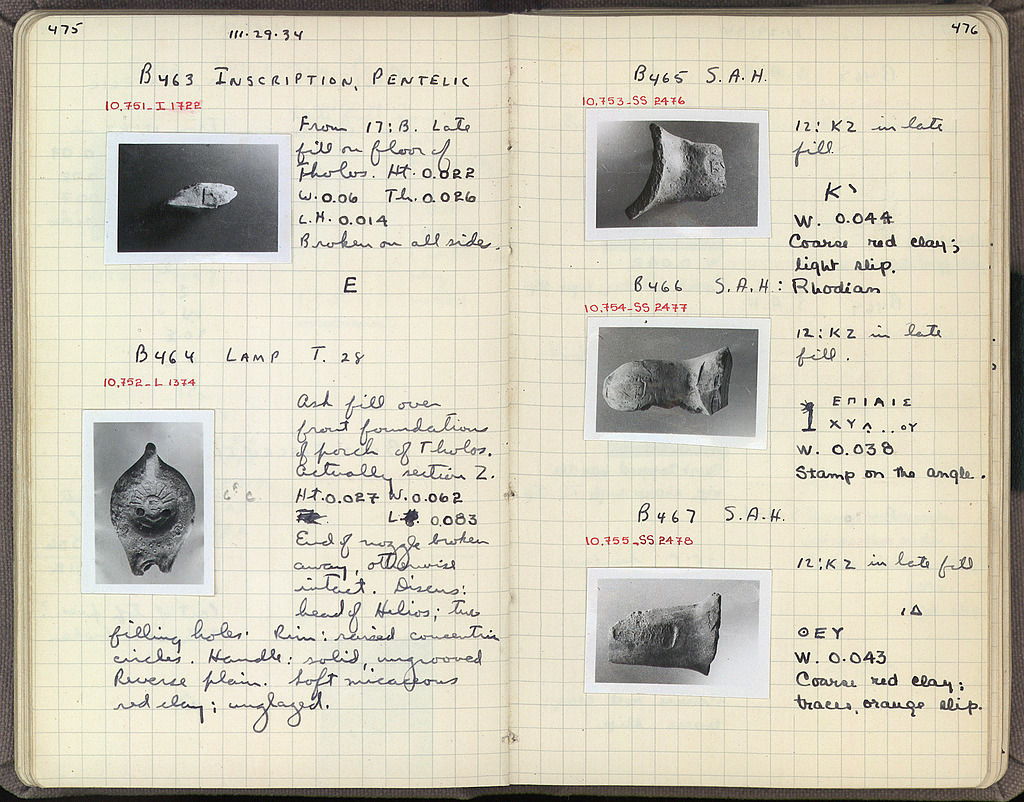 475
111·29·34
B463 INSCRIPTION, PENTELIC
10,751-I 1722
From 17:B. Late
fill on floor of
Tholos. Ht. 0.022
W. 0.06 Th. 0.026
L.H. 0.014
Broken on all side.
E
B464 LAMP T. 28
10,752-L 1374
Ash fill over
front foundations
of porch of Tholos.
Actually section Z.
Ht. 0.027 W. 0.062
L. 0.083
End of nozzle broken
away, otherwise
intact. Discus:
head of Helios; two
filling holes. Rim: raised concentric
circles. Handle: solid, ungrooved
Reverse plain. Soft micaceous
red clay; unglazed.
476
B465 S.A.H.
10,753-SS 2476
12:KZ in late
fill.
K
W. 0.044
Coarse red clay;
light slip.
B466 S.A.H.: Rhodian
10,754-SS 2477
12:KZ in late
fill.
ΕΠΙΑΙΣ
ΧΥΛ...ΟΥ
W. 0.038
Stamp on the angle.
B467 S.A.H.
10,755-SS 2478
12:KZ in late fill
ΙΔ
ΘΕΥ
W. 0.043
Coarse red clay;
traces, orange slip.